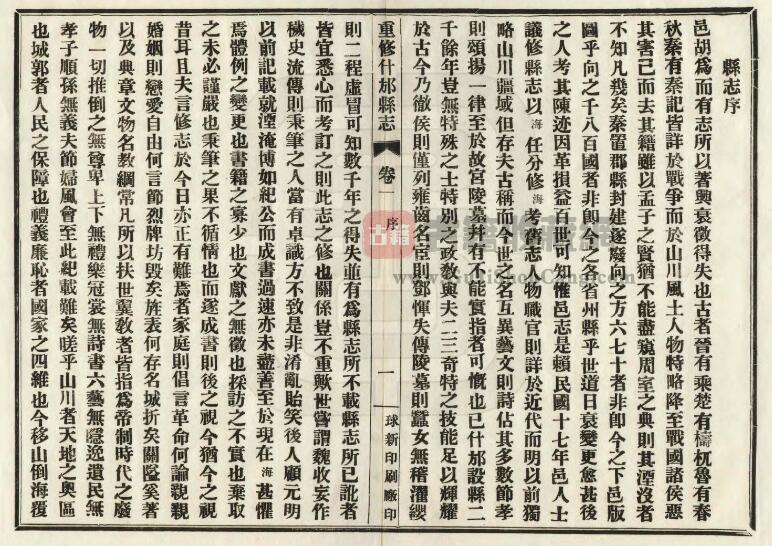 縣志序
邑胡爲而有志所以著興衰徵得失也古者晉有乘楚有檮杌魯有春
秋秦有秦記皆詳於戰爭而於山川風土人物特略降至戰國諸侯惡
其害己而去其籍雖以孟子之賢猶不能盡窺周室之典則其湮沒者
不知凡幾矣秦置郡縣封建遂廢向之方六七十者非卽今之下邑版
圖乎向之千八百國者非卽今之各省州縣乎世道日衰變更愈甚後
之人考其陳迹因革損益百世可知惟邑志是賴民國十七年邑人士
議修縣志以海任分修海考舊志人物職官則詳於近代而明以前獨
略山川疆域但存夫古稱而今世之名互異藝文則詩佔其多數節孝
則頌揚一律至於故宮陵墓并有不能實指者可慨也已什邡設縣二
千餘年豈無特殊之士特別之政敎與夫二三奇特之技能足以輝耀
於古今乃徹侯則僅列雍齒名臣則鄧惲失傳陵墓則蠶女無稽濯纓
重修什邡縣志 卷一 序 一 球新印刷廠印
則二程虛冒可知數千年之得失並有爲縣志所不載縣志所已訛者
皆宜悉心而考訂之則此志之修也關係豈不重歟世嘗謂魏收妄作
穢史流傳則秉筆之人當有卓識方不致是非淆亂貽笑後人顧元明
以前記載就湮淹博如紀公而成書過速亦未盡善至於現在海甚懼
焉體例之變更也書籍之寡少也文獻之無徵也採訪之不實也棄取
之未必謹嚴也秉筆之果不循情也而遂成書則後之視今猶今之視
昔耳且夫言修志於今日亦正有難焉者家庭則倡言革命何論親親
婚姻則戀愛自由何言節烈牌坊毀矣旌表何存名城折矣關隘奚著
以及典章文物名敎綱常凡所以扶世翼敎者皆指爲帝制時代之廢
物一切推倒之無尊卑上下無禮樂冠裳無詩書六藝無隱逸遺民無
孝子順孫無義夫節婦風會至此紀載難矣嗟乎山川者天地之奧區
也城郭者人民之保障也禮義廉恥者國家之四維也今移山倒海覆